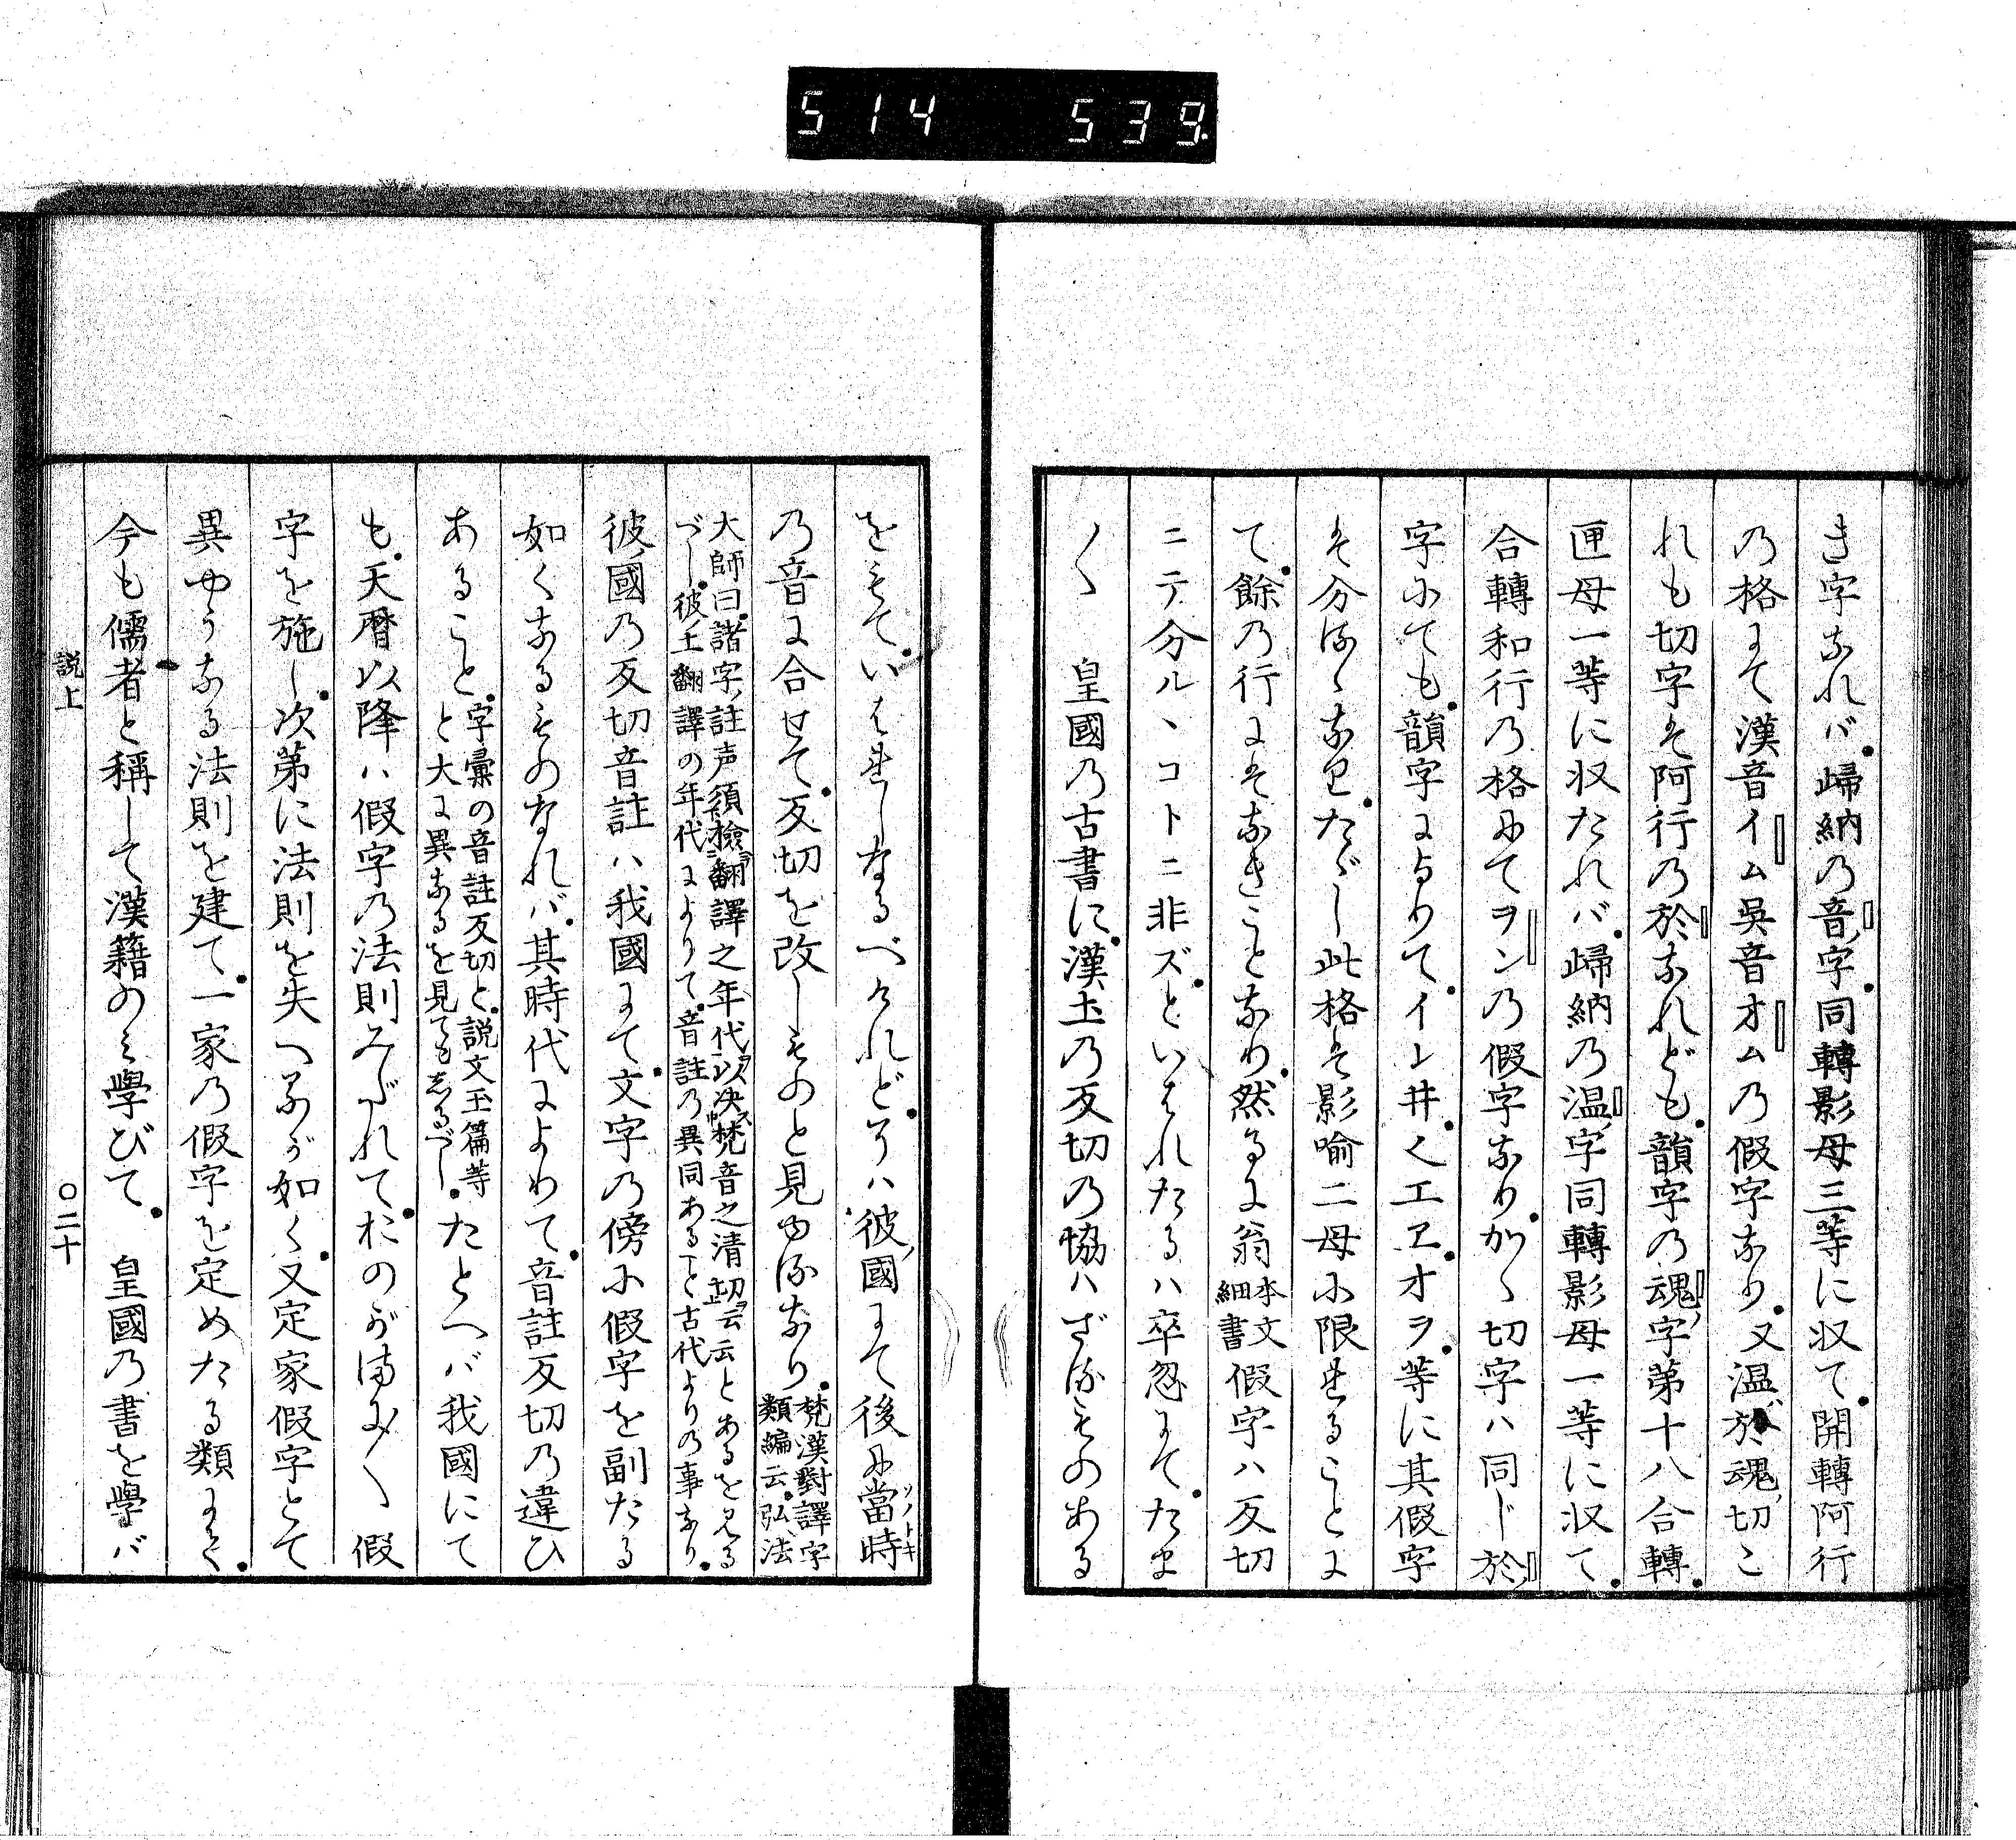 514 539.
き字なれバ歸納の音字同轉影母三等に収て開轉阿行
の格にて漢音イム吳音オムの假字なり又温於魂切こ
れも切字は阿行の於なれども韻字の魂字第十八合轉
匣母一等に収たれバ歸納の温字同轉影母一等に収て
合轉和行の格にてヲンの假字なりかゝ切字ハ同じ於
字にても韻字によりてイレ井くエヱオヲ等に其假字
は分るゝなりたゞし此格は影喩二母に限れることに
て餘の行にはなきことなり然るに翁本文細書假字ハ反切
ニテ分ルヽコトニ非ズといはれたるハ卒忽にてたま
〱　皇國の古書に漢土の反切の協ハざるものある
をもていはれしなるべけれどそハ彼國にて後に當時ソノトキ
の音に合せて反切を改しものと見ゆるなり梵漢對譯字類編云弘法
大師曰諸字註声須檢翻譯之年代以決梵音之清切云云とあるを見る
べし彼土翻譯の年代によりて音註の異同あること古代よりの事なり
彼國の反切音註ハ我國にて文字の傍に假字を副たる
如くなるものなれバ其時代によりて音註反切の違ひ
あること字彙の音註反切と説文玉篇等と大に異なるを見てもしるべしたとへバ我國にて
も天曆以降ハ假字の法則みだれておのがまに〱假
字を施し次第に法則を失へるが如く又定家假字とて
異やうなる法則を建て一家の假字を定めたる類にて
今も儒者と稱して漢籍のみ學びて　皇國の書を學バ
説上　〇二十